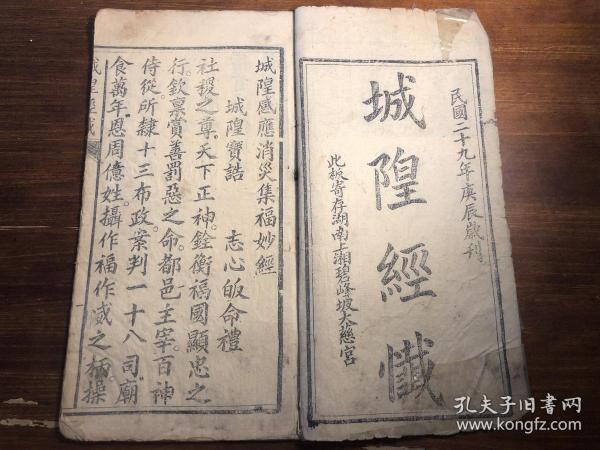 民國二十九年庚辰歲刊
城隍經懺
此板寄存湖南上湘碧峰坡大慈宮
城隍感應消災集福妙經
城隍寶誥 志心皈命禮
社稷之尊。天下正神。銓衡福國顯忠之
行。欽稟賞善罰惡之命。都邑主宰。百神
侍從。所隸十三布政。案判一十八司。廟
食萬年。恩周億姓。攝作福作威之柄操
城隍經懺
孔夫子旧书网
www.kongfz.com